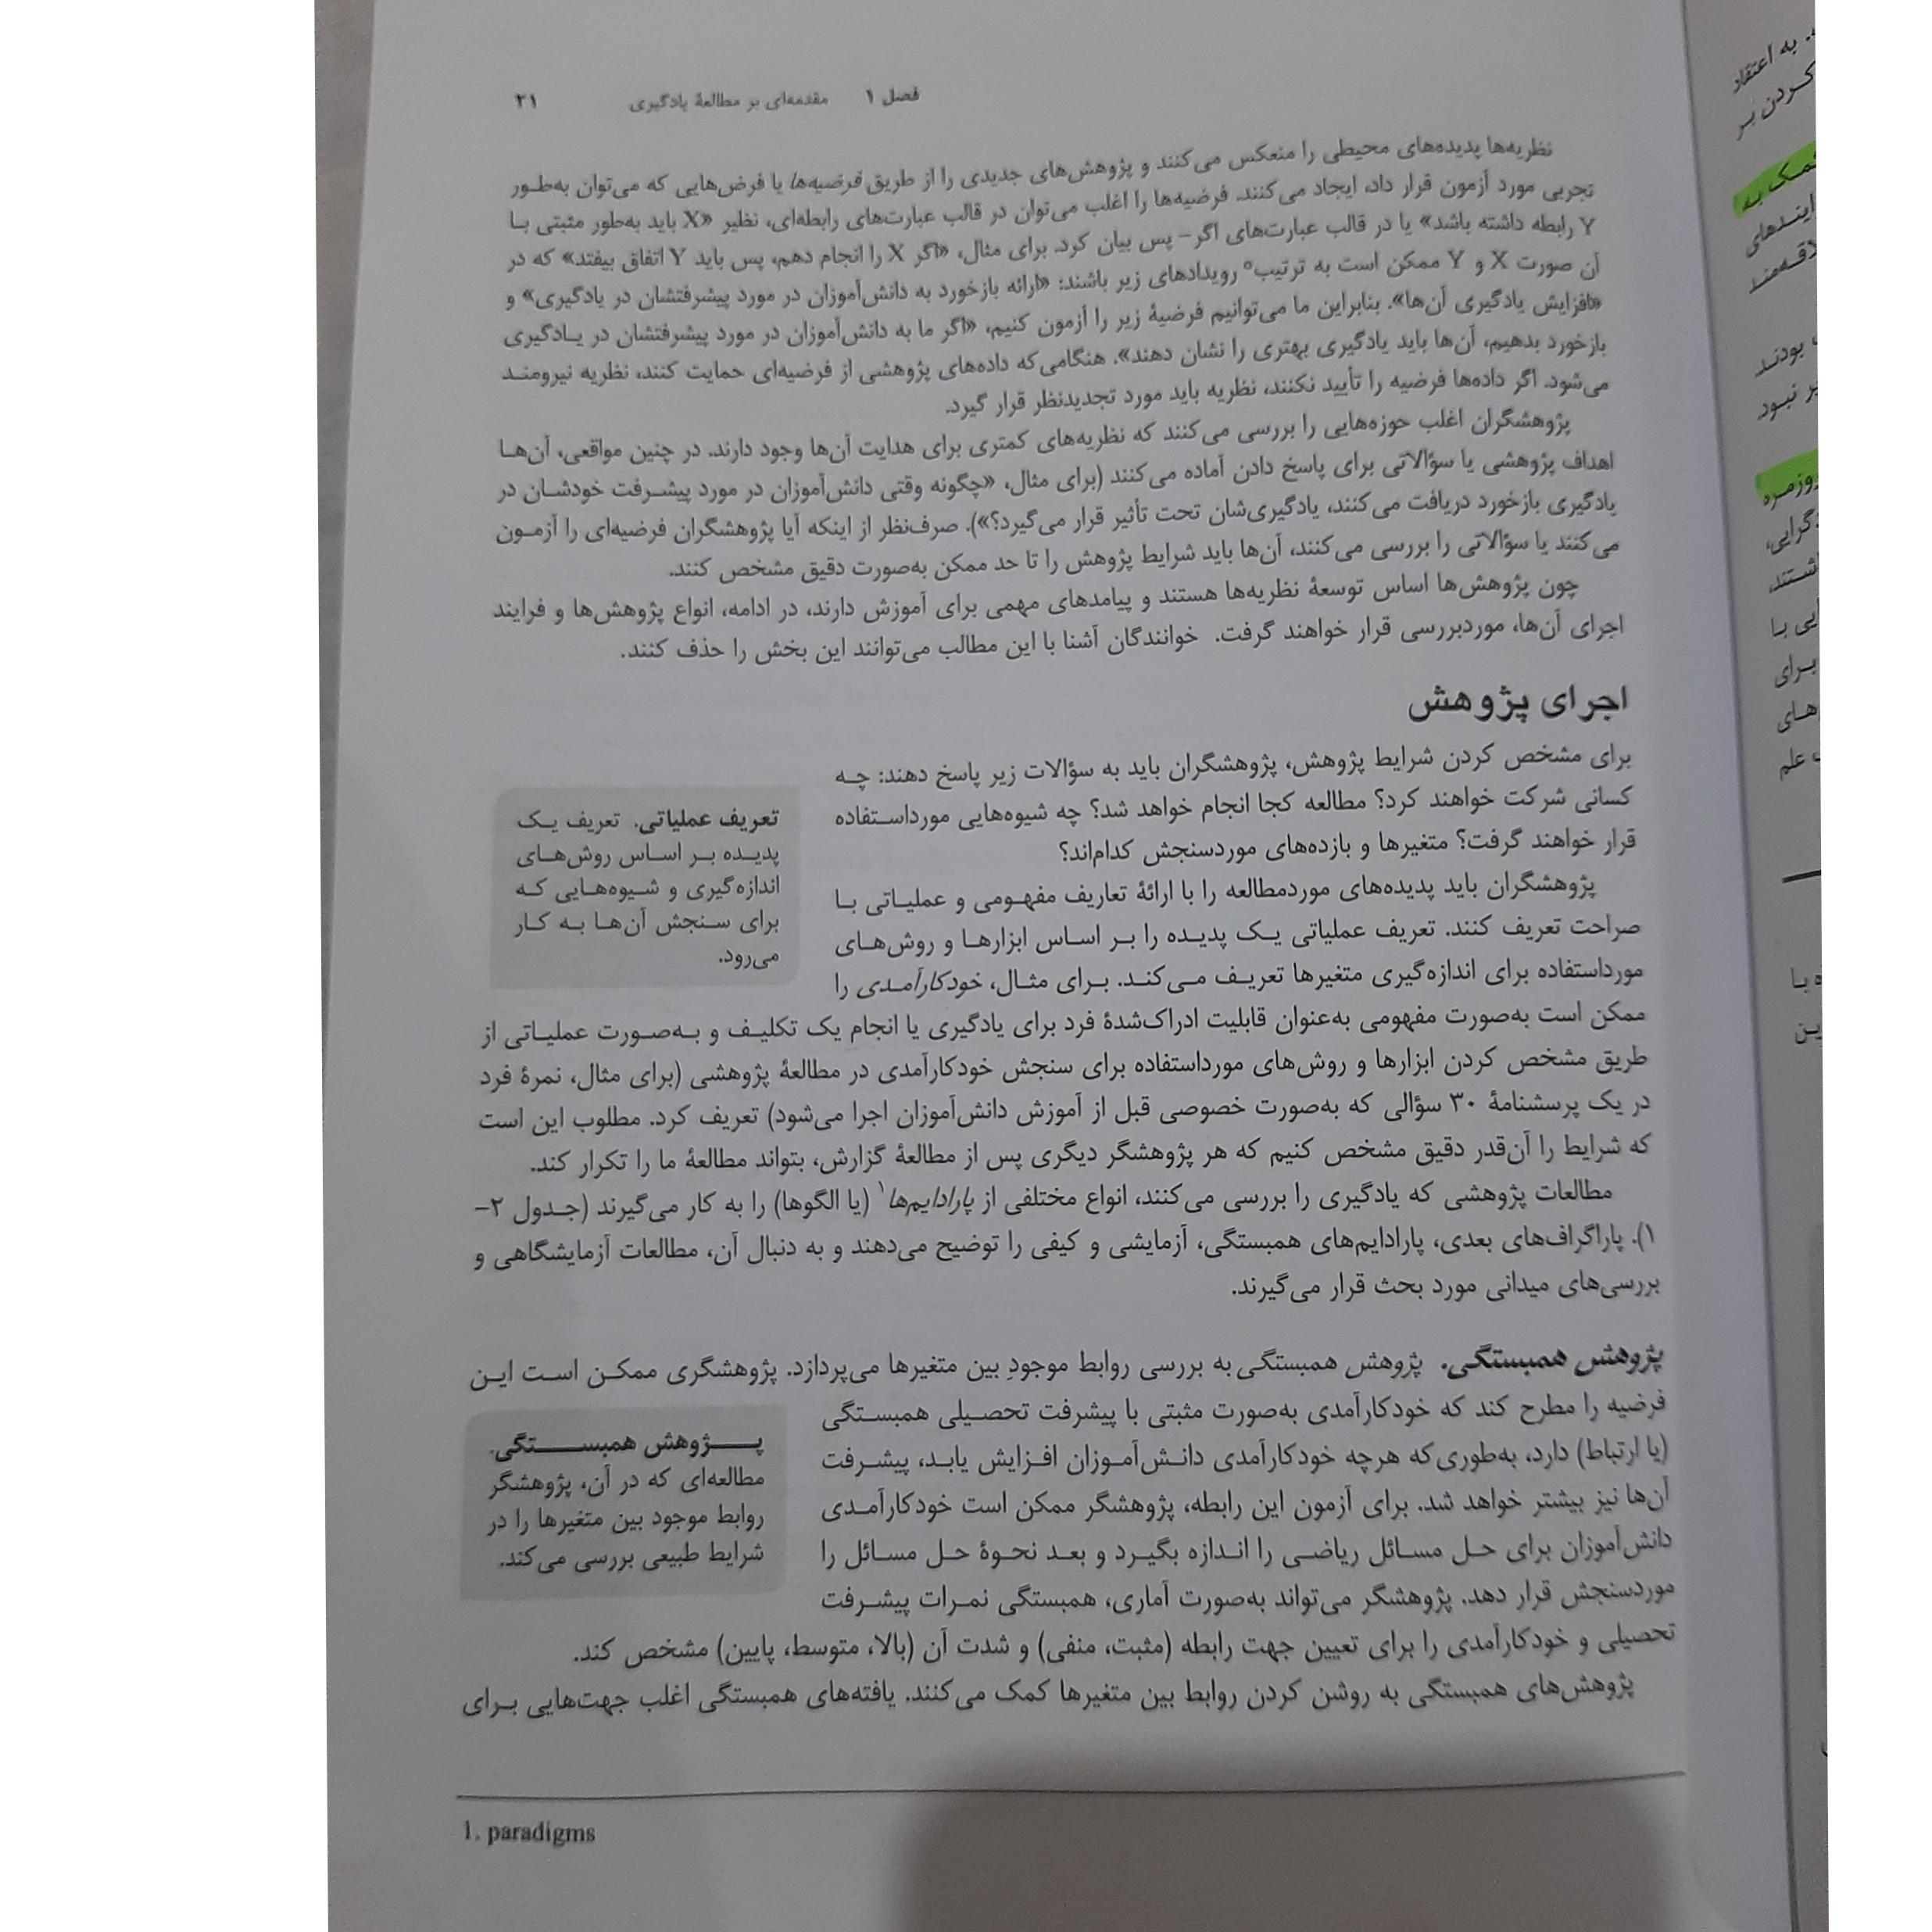 فصل ۱ مقدمه‌ای بر مطالعهٔ یادگیری ۲۱
نظریه‌ها پدیده‌های محیطی را منعکس می‌کنند و پژوهش‌های جدیدی را از طریق فرضیه‌ها یا فرض‌هایی که می‌توان به‌طور
تجربی مورد آزمون قرار داد، ایجاد می‌کنند. فرضیه‌ها را اغلب می‌توان در قالب عبارت‌های رابطه‌ای، نظیر «X باید به‌طور مثبتی با
Y رابطه داشته باشد» یا در قالب عبارت‌های اگر- پس بیان کرد. برای مثال، «اگر X را انجام دهم، پس باید Y اتفاق بیفتد» که در
آن صورت X و Y ممکن است به ترتیب° رویدادهای زیر باشند: «ارائه بازخورد به دانش‌آموزان در مورد پیشرفتشان در یادگیری» و
«افزایش یادگیری آن‌ها». بنابراین ما می‌توانیم فرضیهٔ زیر را آزمون کنیم، «اگر ما به دانش‌آموزان در مورد پیشرفتشان در یادگیری
بازخورد بدهیم، آن‌ها باید یادگیری بهتری را نشان دهند». هنگامی‌که داده‌های پژوهشی از فرضیه‌ای حمایت کنند، نظریه نیرومند
می‌شود. اگر داده‌ها فرضیه را تأیید نکنند، نظریه باید مورد تجدیدنظر قرار گیرد.
پژوهشگران اغلب حوزه‌هایی را بررسی می‌کنند که نظریه‌های کمتری برای هدایت آن‌ها وجود دارند. در چنین مواقعی، آن‌ها
اهداف پژوهشی یا سؤالاتی برای پاسخ دادن آماده می‌کنند (برای مثال، «چگونه وقتی دانش‌آموزان در مورد پیشرفت خودشان در
یادگیری بازخورد دریافت می‌کنند، یادگیری‌شان تحت تأثیر قرار می‌گیرد؟»). صرف‌نظر از اینکه آیا پژوهشگران فرضیه‌ای را آزمون
می‌کنند یا سؤالاتی را بررسی می‌کنند، آن‌ها باید شرایط پژوهش را تا حد ممکن به‌صورت دقیق مشخص کنند.
چون پژوهش‌ها اساس توسعهٔ نظریه‌ها هستند و پیامدهای مهمی برای آموزش دارند، در ادامه، انواع پژوهش‌ها و فرایند
اجرای آن‌ها، موردبررسی قرار خواهند گرفت. خوانندگان آشنا با این مطالب می‌توانند این بخش را حذف کنند.
اجرای پژوهش
برای مشخص کردن شرایط پژوهش، پژوهشگران باید به سؤالات زیر پاسخ دهند: چه
کسانی شرکت خواهند کرد؟ مطالعه کجا انجام خواهد شد؟ چه شیوه‌هایی مورداستفاده
قرار خواهند گرفت؟ متغیرها و بازده‌های موردسنجش کدام‌اند؟
پژوهشگران باید پدیده‌های موردمطالعه را با ارائهٔ تعاریف مفهومی و عملیاتی با
صراحت تعریف کنند. تعریف عملیاتی یک پدیده را بر اساس ابزارها و روش‌های
مورداستفاده برای اندازه‌گیری متغیرها تعریف می‌کند. برای مثال، خودکارآمدی را
ممکن است به‌صورت مفهومی به‌عنوان قابلیت ادراک‌شدهٔ فرد برای یادگیری یا انجام یک تکلیف و به‌صورت عملیاتی از
طریق مشخص کردن ابزارها و روش‌های مورداستفاده برای سنجش خودکارآمدی در مطالعهٔ پژوهشی (برای مثال، نمرهٔ فرد
در یک پرسشنامهٔ ۳۰ سؤالی که به‌صورت خصوصی قبل از آموزش دانش‌آموزان اجرا می‌شود) تعریف کرد. مطلوب این است
که شرایط را آن‌قدر دقیق مشخص کنیم که هر پژوهشگر دیگری پس از مطالعهٔ گزارش، بتواند مطالعهٔ ما را تکرار کند.
مطالعات پژوهشی که یادگیری را بررسی می‌کنند، انواع مختلفی از پارادایم‌ها۱ (یا الگوها) را به کار می‌گیرند (جدول ۲-
۱). پاراگراف‌های بعدی، پارادایم‌های همبستگی، آزمایشی و کیفی را توضیح می‌دهند و به دنبال آن، مطالعات آزمایشگاهی و
بررسی‌های میدانی مورد بحث قرار می‌گیرند.
تعریف عملیاتی. تعریف یک
پدیده بر اساس روش‌های
اندازه‌گیری و شیوه‌هایی که
برای سنجش آن‌ها به کار
می‌رود.
پژوهش همبستگی. پژوهش همبستگی به بررسی روابط موجودِ بین متغیرها می‌پردازد. پژوهشگری ممکن است این
فرضیه را مطرح کند که خودکارآمدی به‌صورت مثبتی با پیشرفت تحصیلی همبستگی
(یا ارتباط) دارد، به‌طوری‌که هرچه خودکارآمدی دانش‌آموزان افزایش یابد، پیشرفت
آن‌ها نیز بیشتر خواهد شد. برای آزمون این رابطه، پژوهشگر ممکن است خودکارآمدی
دانش‌آموزان برای حل مسائل ریاضی را اندازه بگیرد و بعد نحوهٔ حل مسائل را
موردسنجش قرار دهد. پژوهشگر می‌تواند به‌صورت آماری، همبستگی نمرات پیشرفت
تحصیلی و خودکارآمدی را برای تعیین جهت رابطه (مثبت، منفی) و شدت آن (بالا، متوسط، پایین) مشخص کند.
پژوهش‌های همبستگی به روشن کردن روابط بین متغیرها کمک می‌کنند. یافته‌های همبستگی اغلب جهت‌هایی برای
پژوهش همبستگی.
مطالعه‌ای که در آن، پژوهشگر
روابط موجود بین متغیرها را در
شرایط طبیعی بررسی می‌کند.
1. paradigms
به اعتقاد
کردن بر
کمک به
بودند
نبود
روزمره
برای
علم